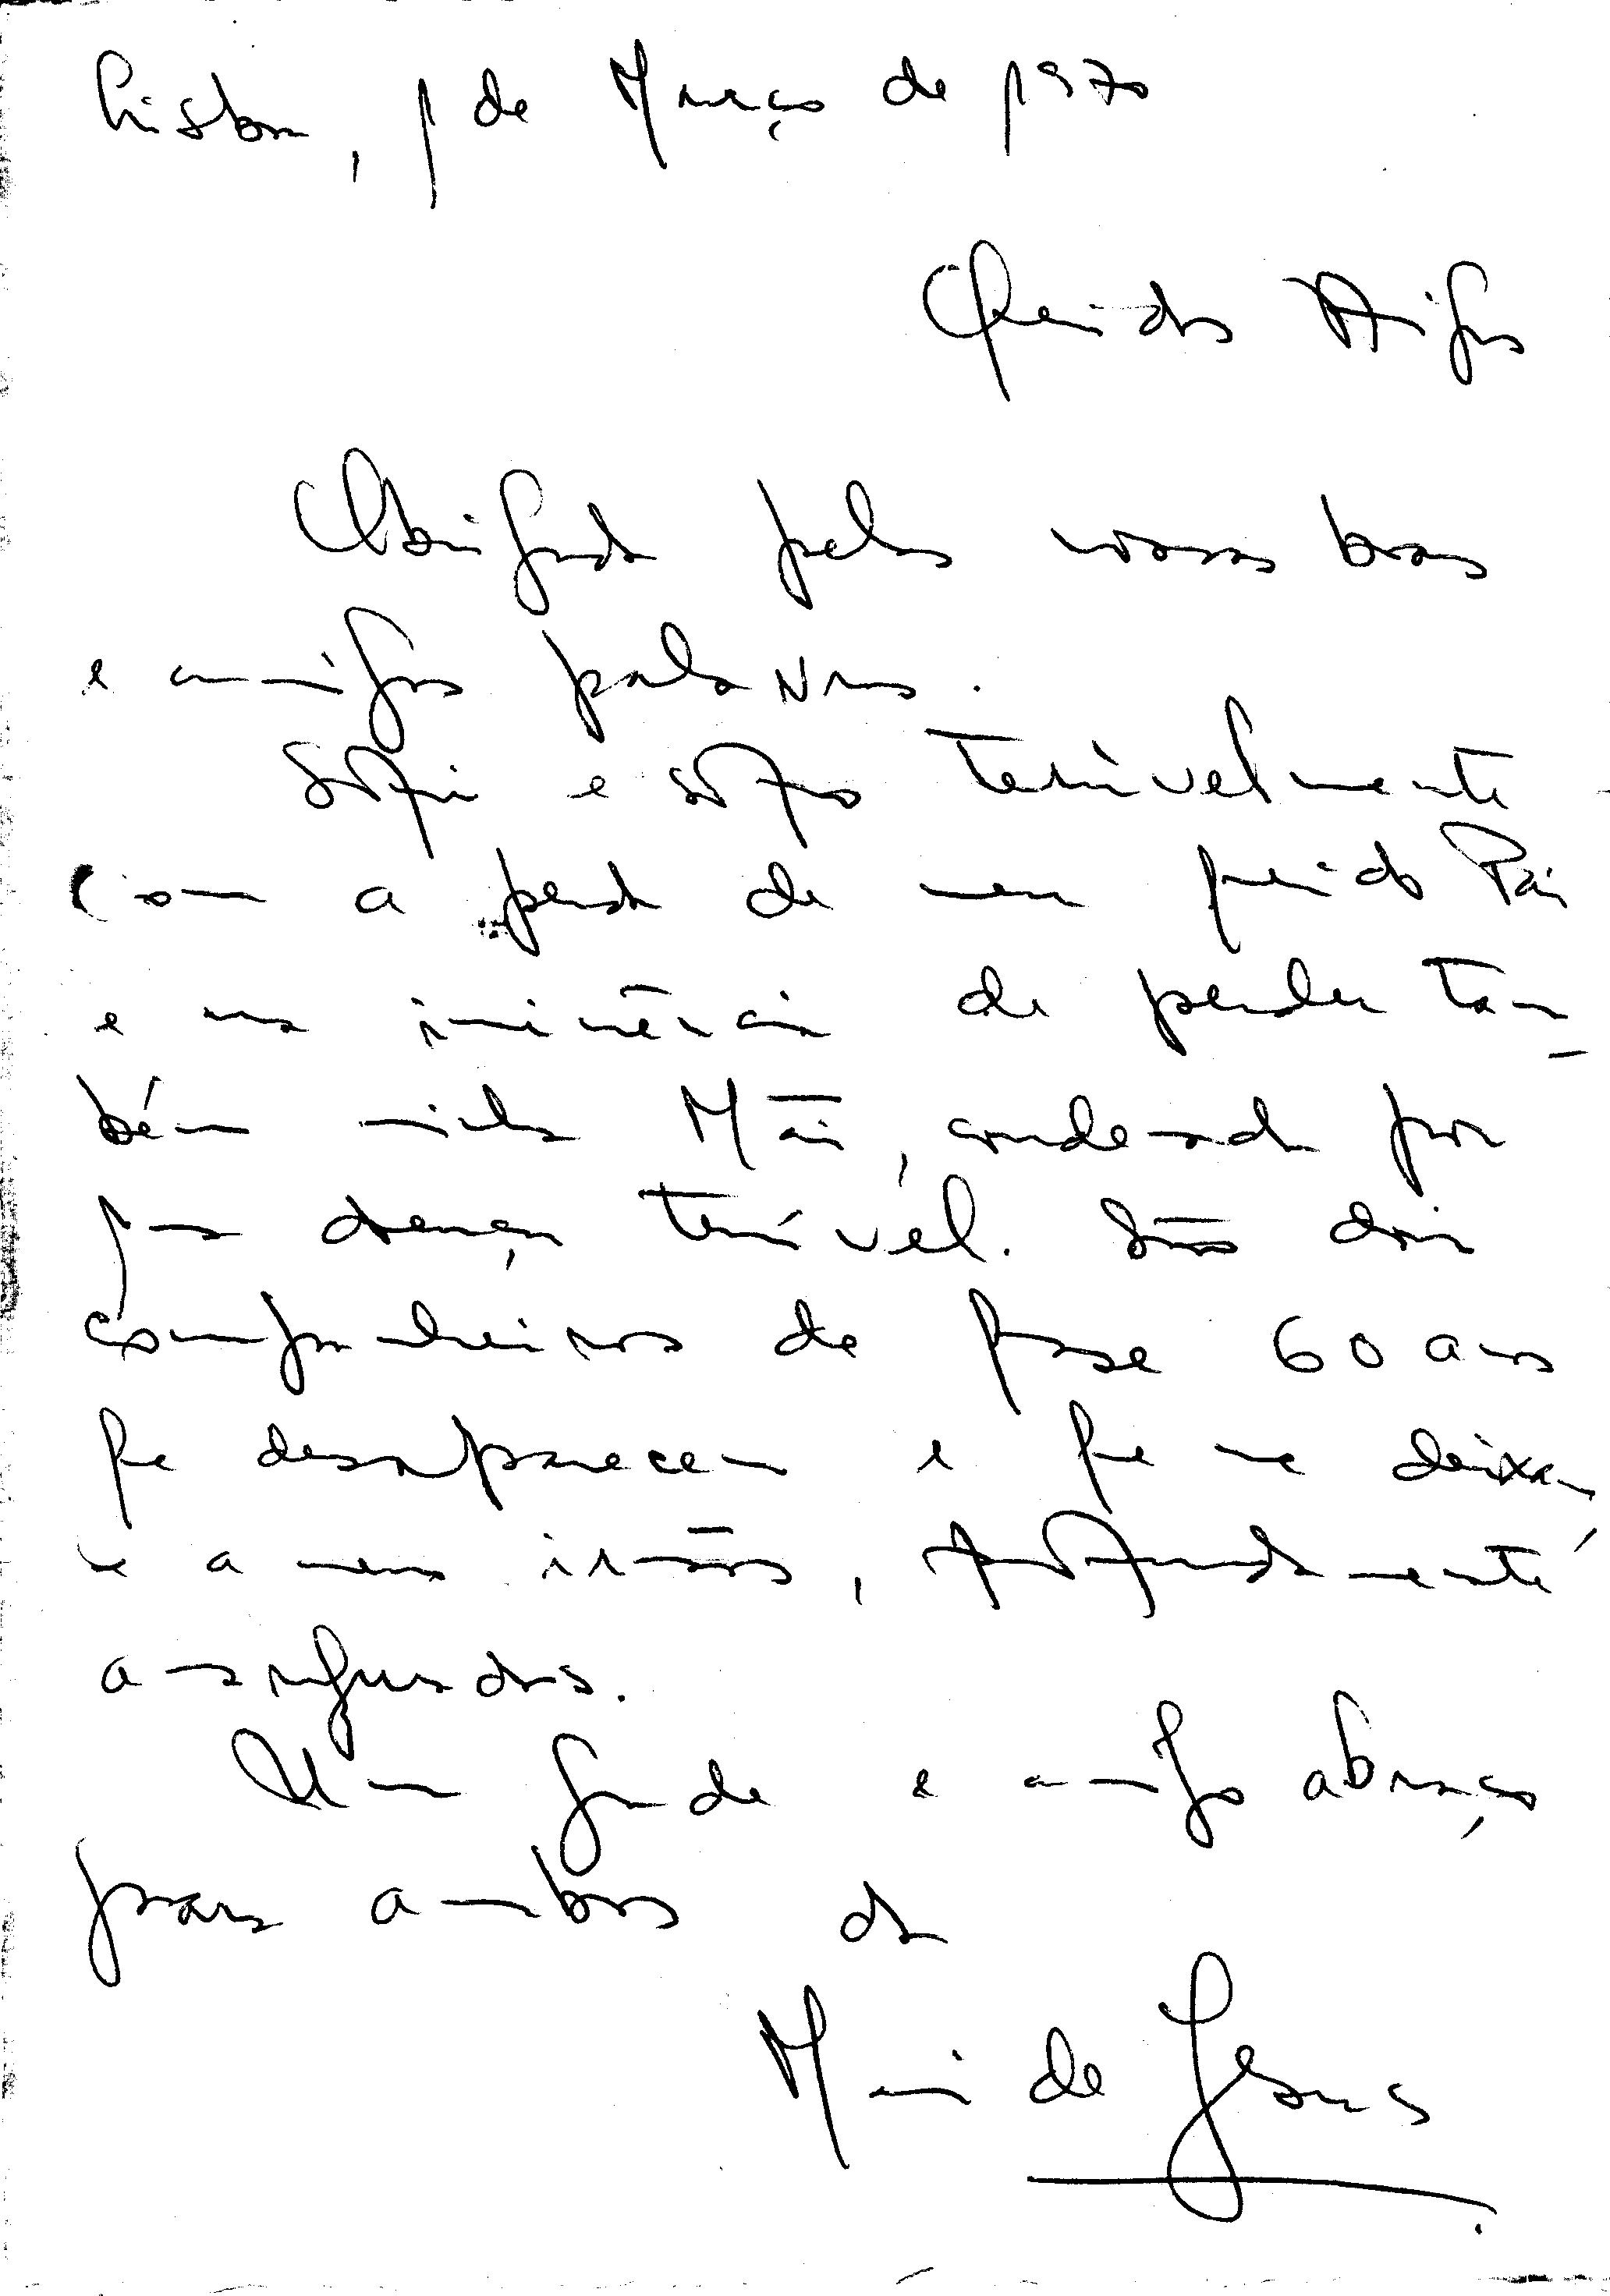 Lisboa, 1 de Março de 1970
Queridos Amigos
Obrigada pelas vossas boas
e amigas palavras.
Sofri e sofro terrivelmente
com a perda de meu querido Pai
e na iminência de perder tam-
bém minha Mãi, condenada por
1ª doença terrível. São dois
companheiros de quase 60 anos
que desaparecem e que me deixam,
e a meus irmãos, profundamente
amargurados.
Um grande e amigo abraço
para ambos da
Maria de Jesus